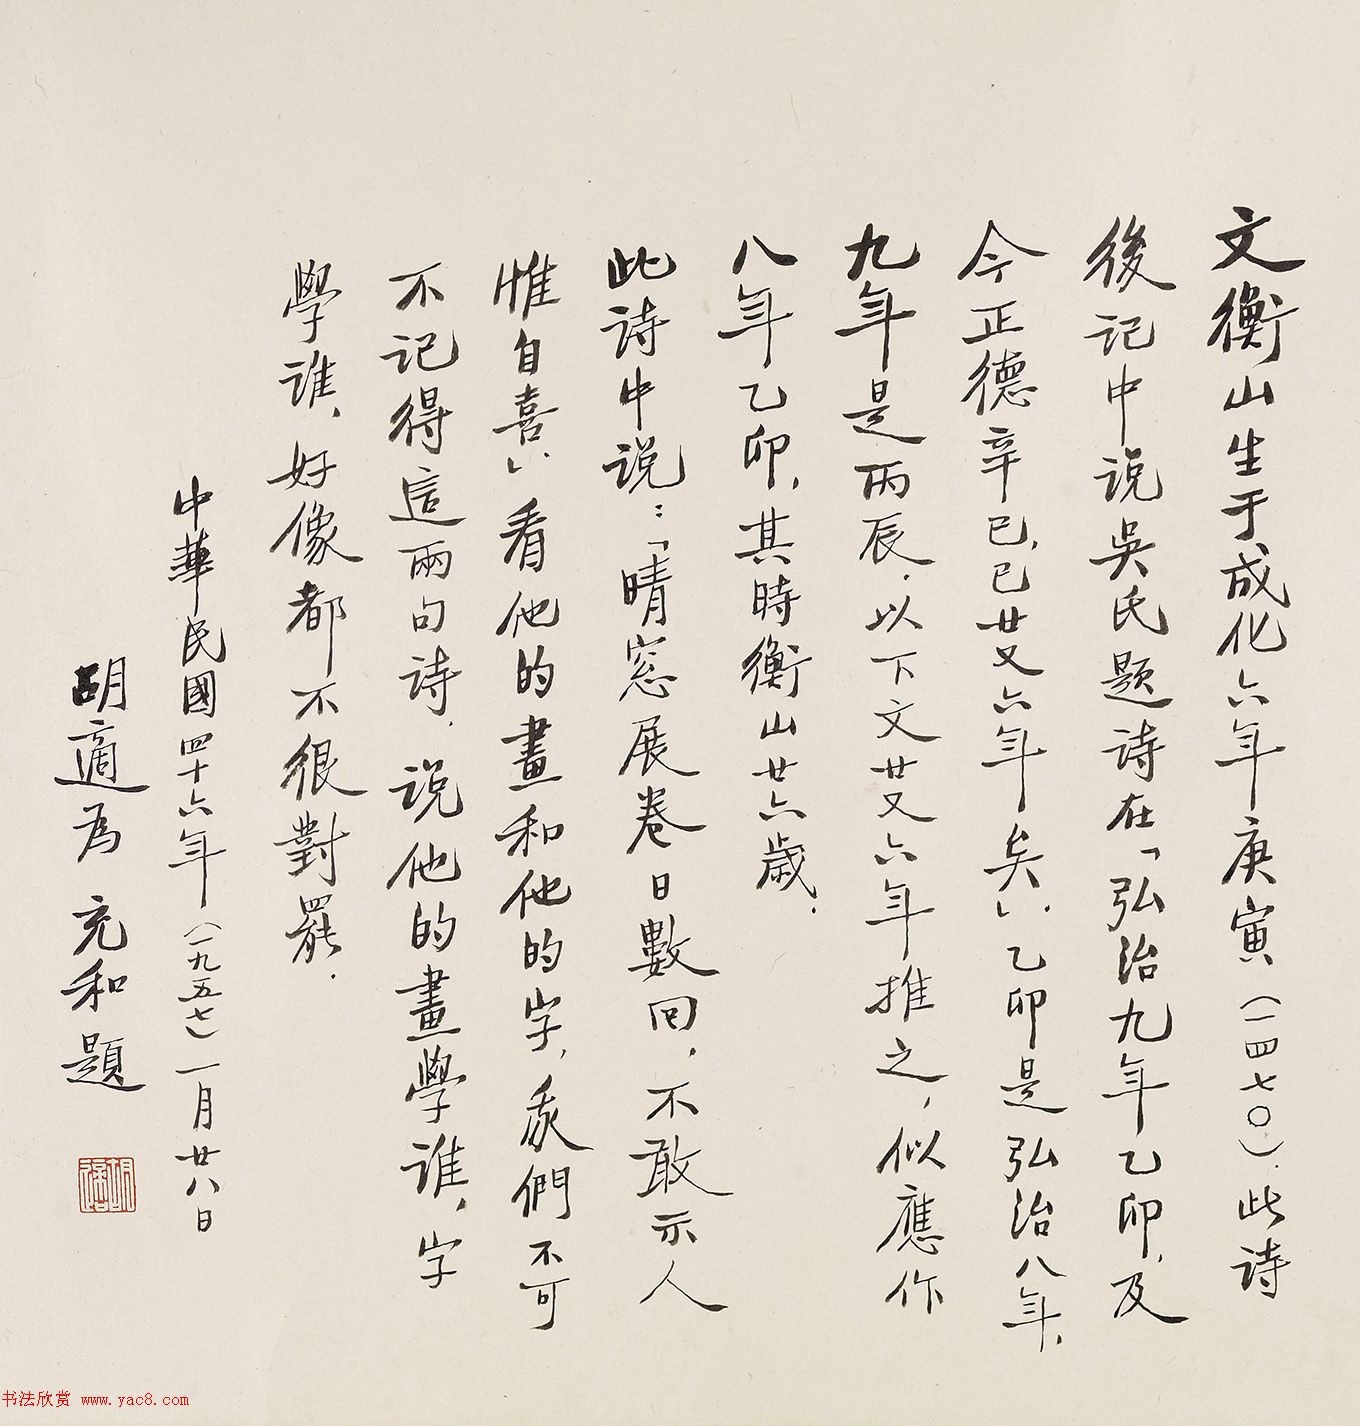 文衡山生于成化六年庚寅（一四七〇）．此詩
後記中说吳氏題诗在「弘治九年乙卯，及
今正德辛巳，已廿又六年矣」．乙卯是弘治八年，
九年是丙辰．以下文廿又六年推之，似應作
八年乙卯，其時衡山廿六歲．
此诗中说：「晴窓展卷日數回，不敢示人
惟自喜」．看他的畫和他的字，我們不可
不记得這兩句诗．说他的畫學谁，字
學谁，好像都不很對罷．
中華民國四十六年（一九五七）一月廿八日
胡適為 充和題
胡適
书法欣赏 www.yac8.com